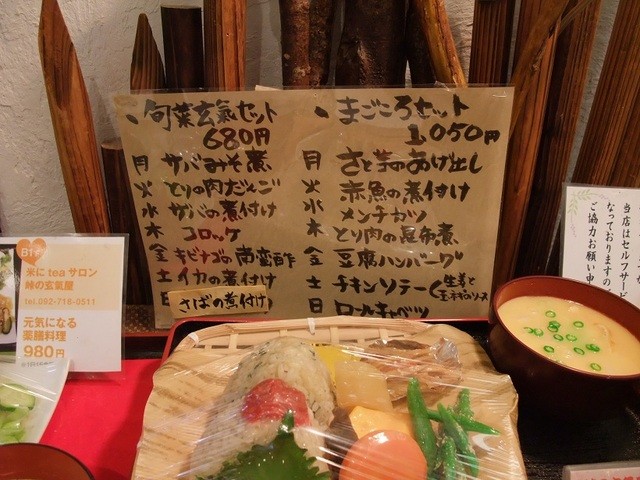 旬菜玄氣セット
680円
月 サバみそ煮
火 とりの肉だんご
水 サバの煮付け
木 コロッケ
金 キビナゴの南蛮酢
土 イカの煮付け
日 さばの煮付け
まごころセット
1,050円
月 さと芋のあげ出し
火 赤魚の煮付け
水 メンチカツ
木 とり肉の昆布煮
金 豆腐ハンバーグ
土 チキンソテー 生姜と玉ネギのソース
日 ロールキャベツ
B1F
米に tea サロン
峠の玄氣屋
tel.092-716-0511
元気になる
薬膳料理
980円
当店はセルフサービ
なっておりますの
ご協力お願い申